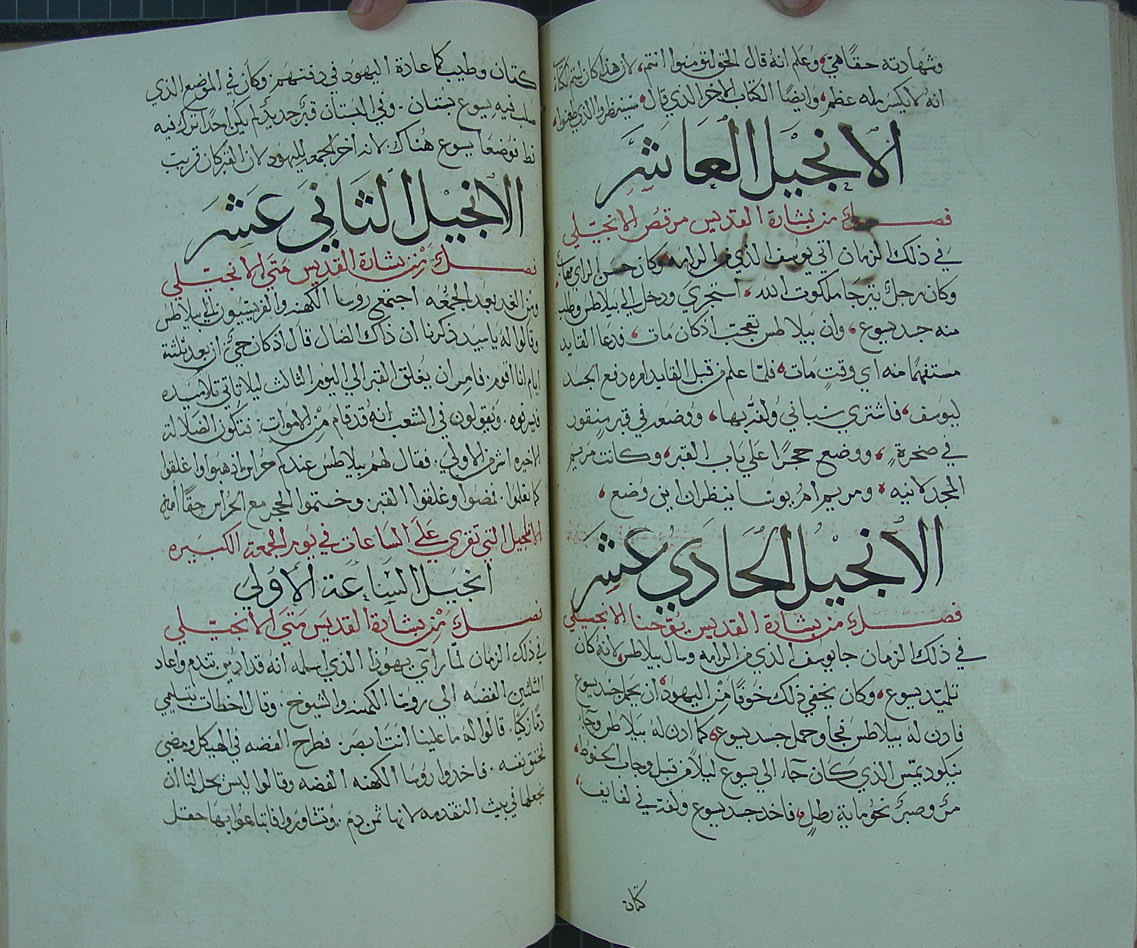 وشهادته حقا هي، وعلم انه قال الحق لتومنوا انتم، لان هذا كان ليتم
انه لا يكسر له عظم، وايضا الكتاب الاخر الذي قال، سينظروا الذي طعنوا،
الانجيل العاشر
فصل من بشارة القديس مرقص الانجيلي
في ذلك الزمان اتي يوسف الذي من الرامه، وكان حسن الراي
وكان يرجا ملكوت الله، استجري ودخل الي بيلاطس وطلب
منه جسد يسوع، وان بيلاطس تعجب اذ كان مات، فدعا القايد
مستفهما منه اي وقت مات، فلما علم من قبل القايد امره دفع الجسد
ليوسف، فاشتري سباني ولفه بها، ووضعه في قبر منقور
في صخرة، ووضع حجرا علي باب القبر، وكانت مريم
المجدلانيه، ومريم ام يوسا ينظران اين وضع،
الانجيل الحادي عشر
فصل من بشارة القديس يوحنا الانجيلي
في ذلك الزمان جا يوسف الذي من الرامه وسال بيلاطس، لانه كان
تلميد يسوع، وكان يخفي ذلك خوفا من اليهود، ان يحمل جسد يسوع
فاذن له بيلاطس فجا وحمل جسد يسوع، كما اذن له بيلاطس وجاء
نيكوديمس الذي كان جاء الي يسوع ليلا من قبل وجاب الحنوط،
مر وصبر نحو ماية رطل، فاخد جسد يسوع ولفه في لفايف،
كتان
كتان وطيب كما عادة اليهود في دفنهم وكان في الموضع الذي
صلب فيه يسوع بستان. وفي البستان قبر جديد لم يكن احدا ترك فيه
قط فوضعا يسوع هناك لانه اخر الجمعه لليهود لان القبر كان قريب
الانجيل الثاني عشر
فصل من بشارة القديس متي الانجيلي
ومن الغد بعد الجمعه اجتمع روسا الكهنه والفريسيون الي بيلاطس
وقالوا له يا سيد ذكرنا ان ذاك الضال قال اذ كان حي ان بعد ثلثة
ايام انا اقوم. فامر ان يغلق القبر الي اليوم الثالث ليلا تاتي تلاميده
فيسرقوه. ويقولون في الشعب انه قد قام من الاموات. فتكون الضلالة
الاخره اشر من الاولي. فقال لهم بيلاطس عندكم حراس اذهبوا واغلقوا
كما تعلموا. فمضوا وغلقوا القبر وختموا الحجر مع الحراس
الانجيل التي تقري علي الساعات في يوم الجمعه الكبيره
انجيل الساعة الاولي
فصل من بشارة القديس متي الانجيلي
في ذلك الزمان لما راي يهوذا الذي اسلمه انه قد ادين تندم واعاد
الثلثين الفضه الي روسا الكهنه والشيوخ. وقال اخطات بتسليمي
دما زكيا. قالوا له ما علينا انت ابصر. فطرح الفضه في الهيكل ومضي
فخنق نفسه. فاخدوا روسا الكهنه الفضه وقالوا ليس يحل لنا ان
نجعلها في بيت التقدمه لانها ثمن دم. وتشاوروا فابتاعوا بها حقل